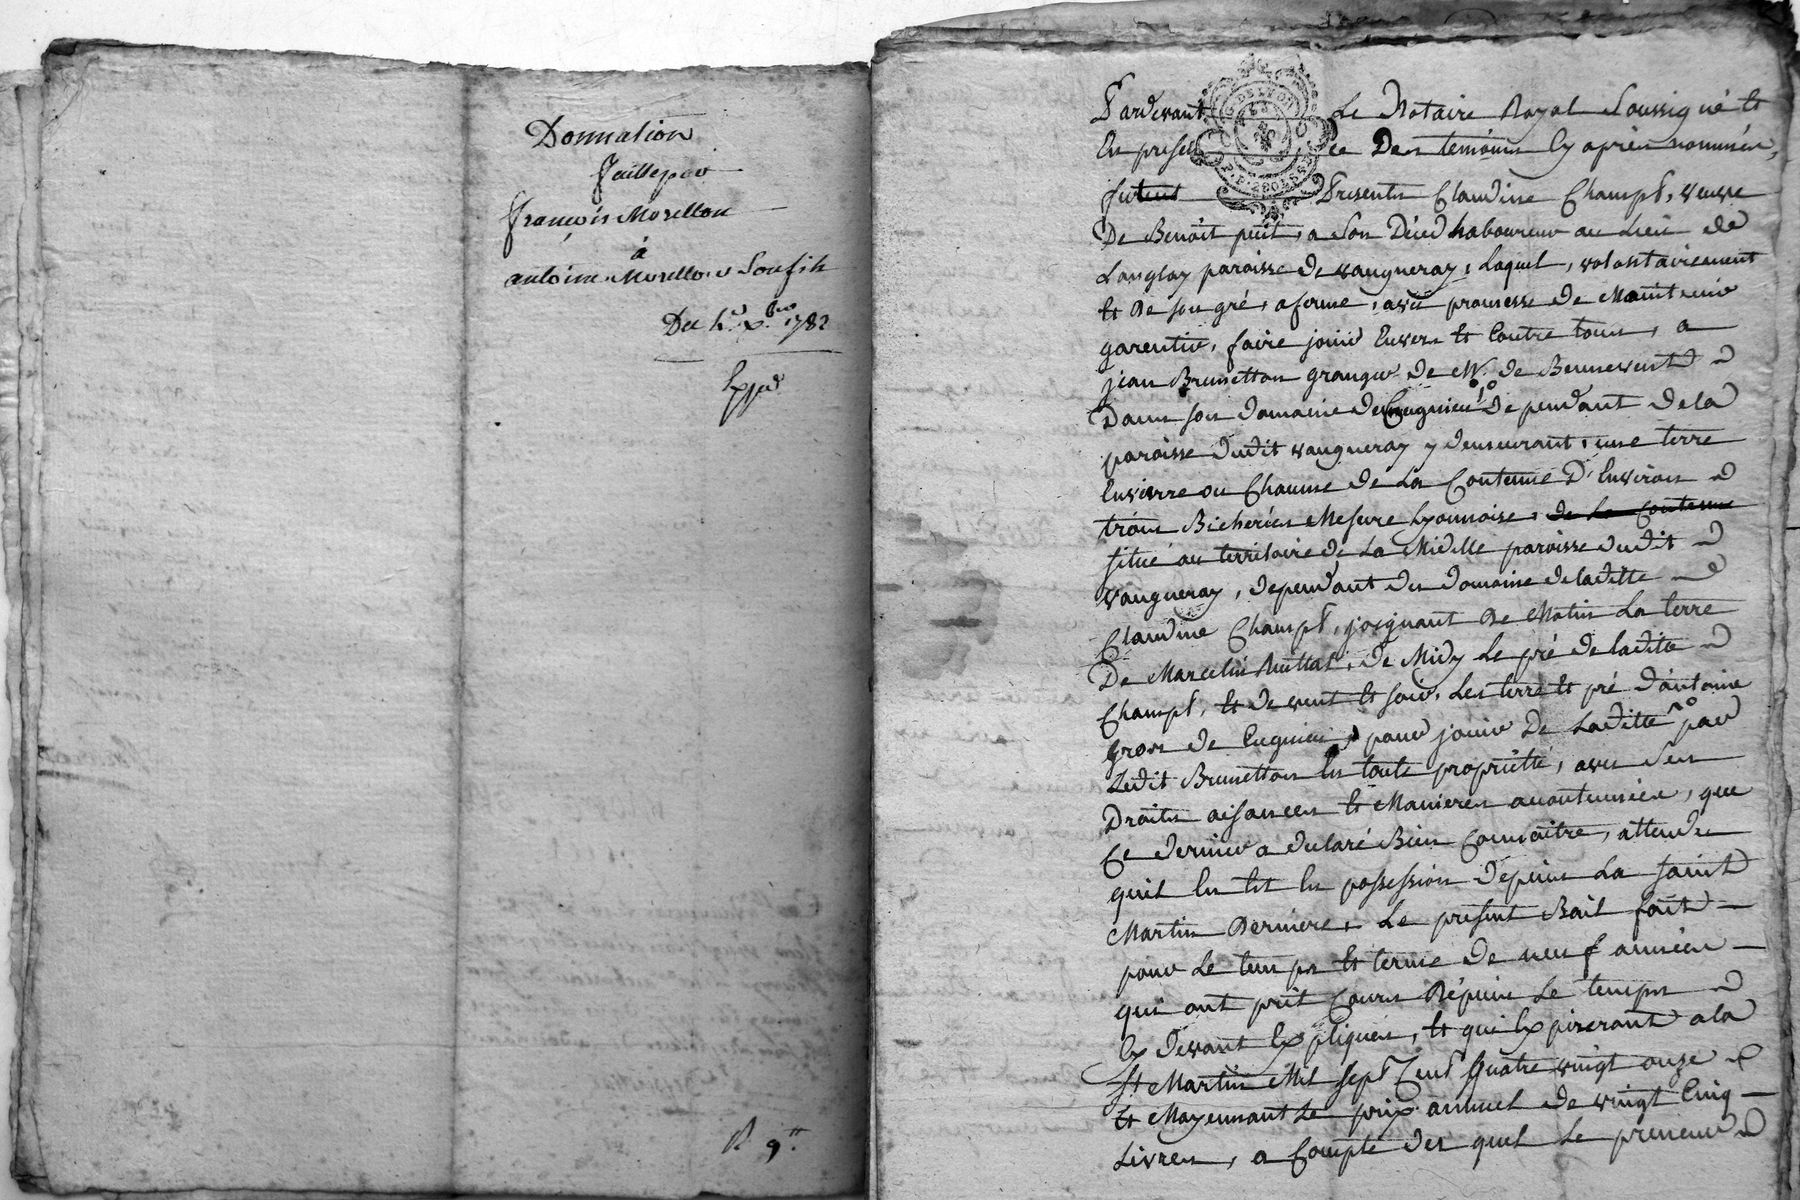 Donnation
faitte par
françois Morellon
à
antoine Morellon Son fils
Du 4e xbre 1782
Exp.d
R 9.tt
Pardevant Le Notaire Royal Soussigné Et
En presence Des temoins Cy après nommés,
futent Presente Claudine Champt, veuve
De Benoît petit, a Son Décéd Laboureur au Lieu de
Langlay paroisse de vaugneray, Laquel, volontairement
Et De son gré, a ferme, avec promesse de Maintenir
garentir, faire jouir Envers Et Contre tous, a
jean Brunetton granger de Mr. de Bennevent
Dans son domaine de Cugnieu dependant de la
paroisse dudit vaugneray y demeurant, une terre
En verre ou Chaume de La Contenue D'Environ
trois Bicherées Mesure Lyonnoise, de La Contenue
situé au territoire de La Midelle paroisse dudit
vaugneray, dependant du domaine de ladite
Claudine Champt, joignant De Matin La terre
De Marcelin, de Midy Le pré de ladite
Champt, Et de vent Et soir, Les terre Et pré d'antoine
gros de Cugnieu, pour jouir De Laditte par
Ledit Brunetton En toute propriété, avec Ses
Droits aisances Et Manieres acoutumées, que
Ce dernier a declaré Bien Connoitre, attendu
quil En Est En possession Depuis La saint
Martin Derniere, Le present Bail fait
pour Le temps Et terme De neuf années
qui ont prit Cours Depuis Le temps
Cy devant Expliqués, Et qui Expireront a la
St Martin Mil sept Cent Quatre vingt onze
Et Moyennant Le prix annuel de vingt Cinq
Livres, a Compte des quel Le preneur